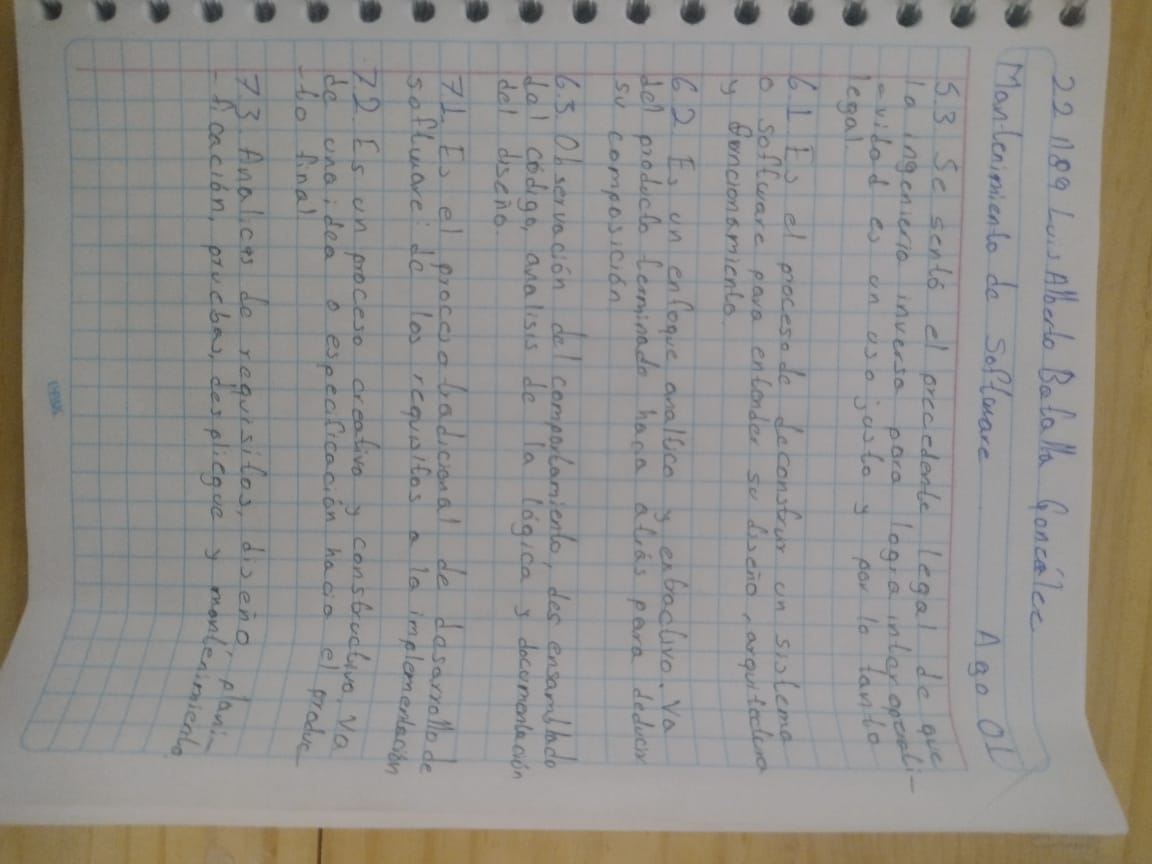 221189 Luis Alberto Batalla González
Mantenimiento de Software Ago 01
5.3 Se sentó el precedente legal de que
la ingeniería inversa para logra interoperali-
-vidad es un uso justo y por lo tanto
legal.
6.1 Es el proceso de deconstruir un sistema
o software para entender su diseño, arquitectura
y funcionamiento.
6.2 Es un enfoque analítico y extractivo. Va
del producto terminado haca atrás para deducir
su composición
6.3. Observación del comportamiento, des ensamblado
del código, analisis de la lógica y documentación
del diseño.
7.1. Es el proceso tradicional de desarrollo de
software: de los requisitos a la implementación
7.2. Es un proceso creativo y constructivo. Va
de una idea o especificación hacia el produc-
-to final
7.3. Analices de requisitos, diseño, plani-
-ficación, pruebas, despliegue y mantenimiento.